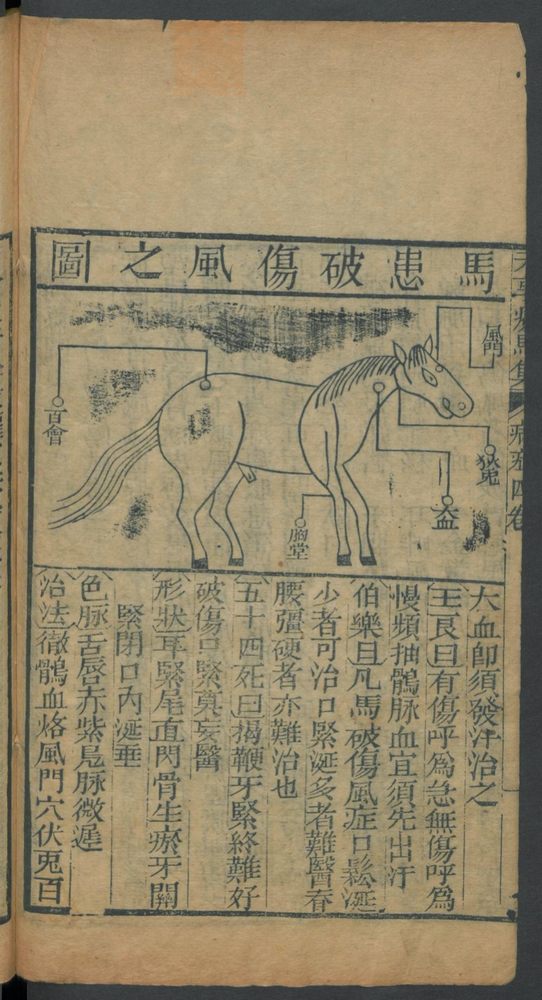 馬患破傷風之圖
風門
伏兔
百會
胸堂
大血即須發汗治之
王良曰有傷呼為急無傷呼為
慢頻抽鶻脉血宜須先出汗
伯樂曰凡馬破傷風症口鬆涎
少者可治口緊涎多者難醫脊
腰彊硬者亦難治也
五十四死曰揭鞭牙緊終難好
破傷口緊莫妄醫
形狀耳緊尾直閃骨生瘀牙關
緊閉口內涎垂
色脉舌唇赤紫鳬脉微遲
治法徹鶻血烙風門穴伏兎百